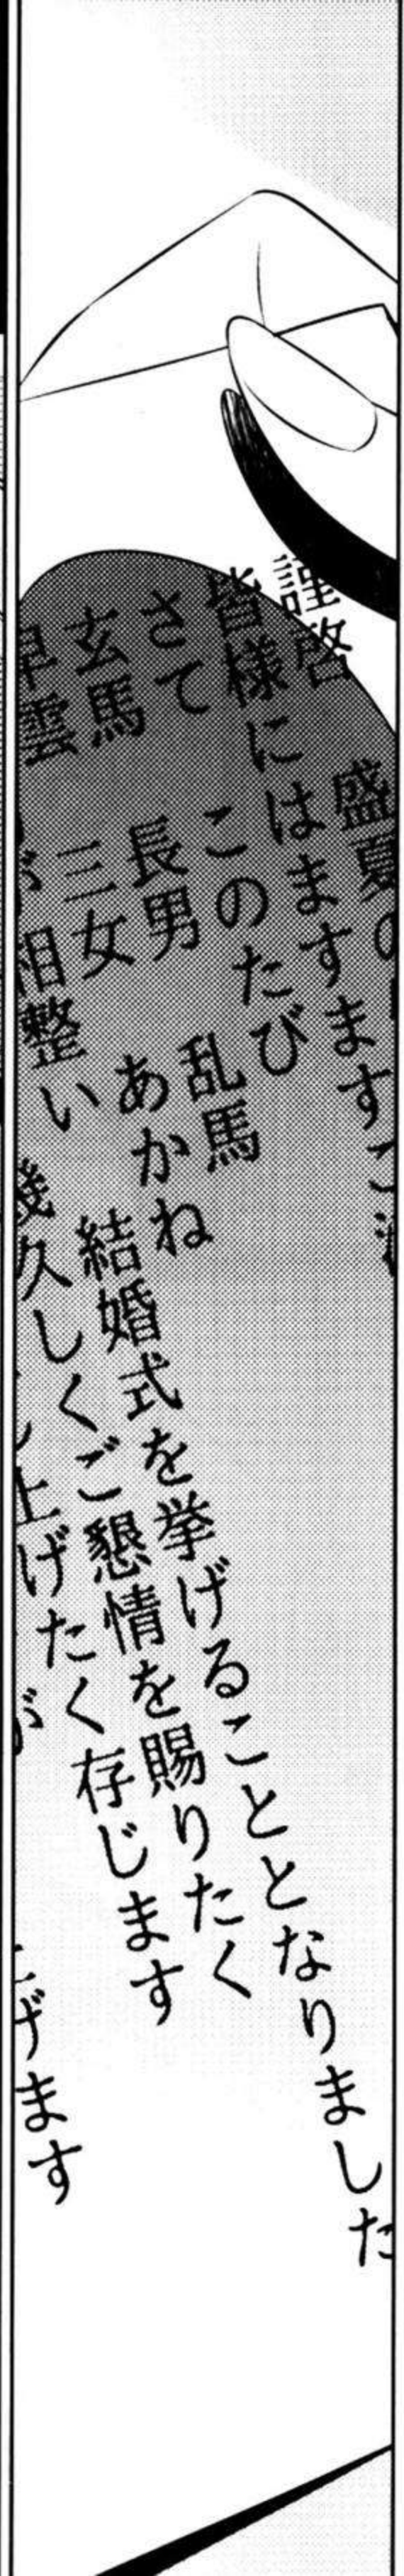 謹啓 盛夏の
皆様にはますますご
さて このたび
玄馬 長男 乱馬
早雲 三女 あかね
が 相整い 結婚式を挙げることとなりました
幾久しくご懇情を賜りたく
し上げたく存じます
が
げます